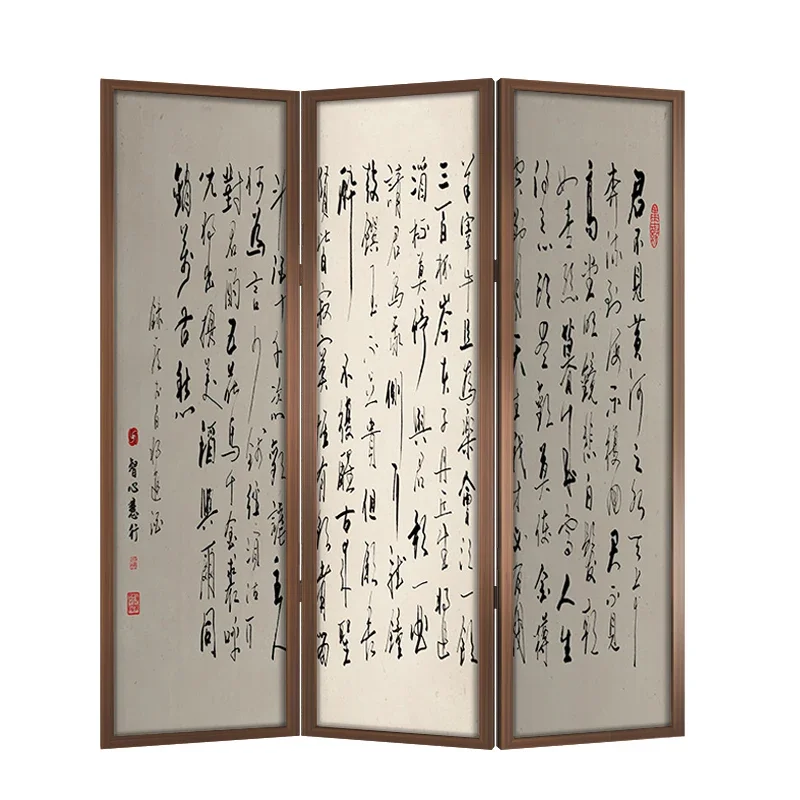 君不見黃河之水天上
奔流到海不復回君不見
高堂明鏡悲白髮朝
如青絲暮成雪人生
得意須盡歡莫使金樽
空對月天生我材必有用
羊宰牛且為樂會須一飲
三百杯岑夫子丹丘生將進
酒杯莫停與君歌一曲
請君為我側耳聽鐘
鼓饌玉不足貴但願長
醉不復醒古來聖
賢皆寂寞惟有飲者留
斗酒十千恣歡謔主人
何為言少錢徑須沽
對君酌五花馬千金裘呼
兒將出換美酒與爾同
銷萬古愁
錄唐李白將進酒
智心慧行